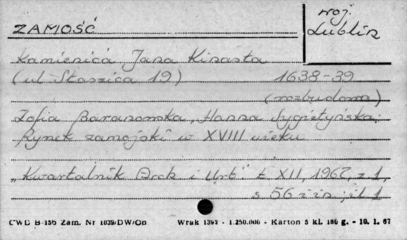 ZAMOŚĆ
woj.
Lublin
Kamienica Jana Kinasta
(ul. Staszica 19) 1638-39
(rozbudowa)
Zofia Baranowska, Hanna Sygietyńska,
Rynek zamojski w XVIII wieku
"Kwartalnik Arch i Urb" t. XII, 1967, z. 1,
s. 56 i in; il 1
CWD B-156 Zam. Nr 1039/DW/Ob Wrak 1391 - 1.250.000 - Karton 5 kl. 180 g. - 10. 1. 67